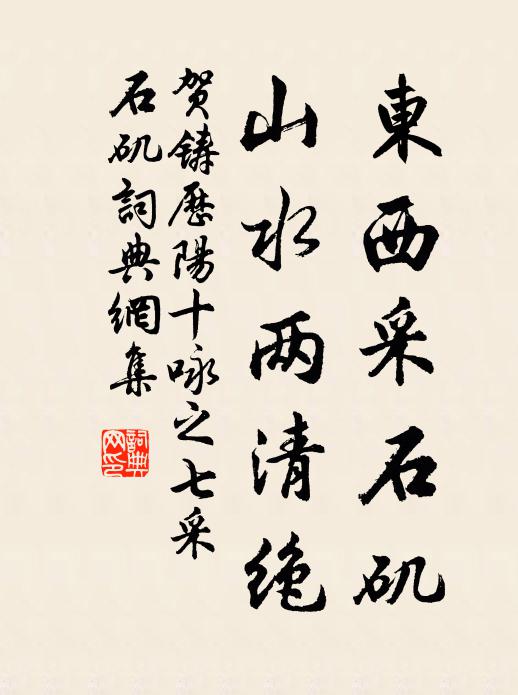 東西采石矶
山水两清绝
贺鑄歷陽十咏之七采
石矶詞典網集
詞典
网印